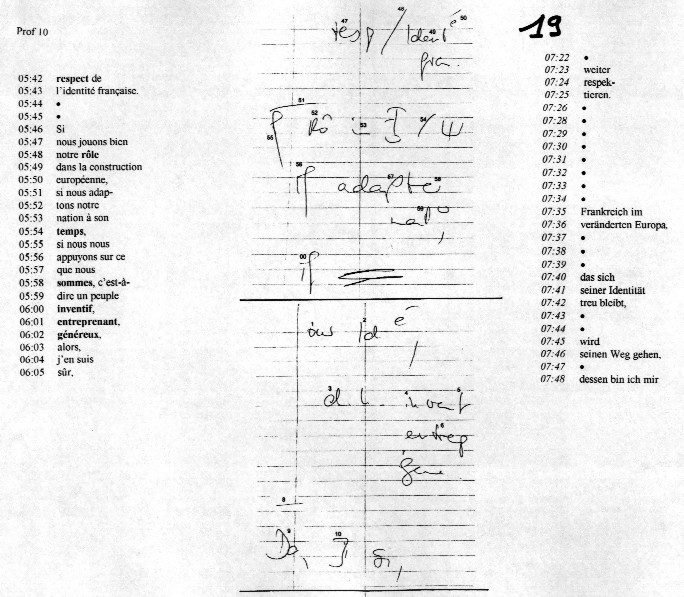 Prof 10
05:42 respect de
05:43 l'identité française.
05:44 •
05:45 •
05:46 Si
05:47 nous jouons bien
05:48 notre rôle
05:49 dans la construction
05:50 européenne,
05:51 si nous adap-
05:52 tons notre
05:53 nation à son
05:54 temps,
05:55 si nous nous
05:56 appuyons sur ce
05:57 que nous
05:58 sommes, c'est-à-
05:59 dire un peuple
06:00 inventif,
06:01 entreprenant,
06:02 généreux,
06:03 alors,
06:04 j'en suis
06:05 sûr,
47 48 49 50
resp / Ident é
fra.
51 52 53 54
55
Rô
56 57 58
if adapte
59
nat°,
00
if
1 2
ous Id é
/
3 4 5
d invent
6
entrep
7
gene
8
9 10
Do, J Si,
19
07:22 •
07:23 weiter
07:24 respek-
07:25 tieren.
07:26 •
07:28 •
07:29 •
07:30 •
07:31 •
07:32 •
07:33 •
07:34 •
07:35 Frankreich im
07:36 veränderten Europa,
07:37 •
07:38 •
07:39 •
07:40 das sich
07:41 seiner Identität
07:42 treu bleibt,
07:43 •
07:44 •
07:45 wird
07:46 seinen Weg gehen,
07:47 •
07:48 dessen bin ich mir